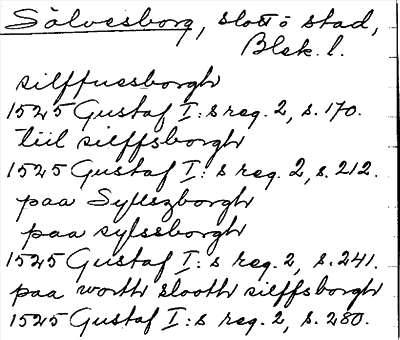 Sölvesborg, slott o stad,
Blek. l.
silffuessborgh
1525 Gustaf I:s reg. 2, s. 170.
tiil silffsborgh
1525 Gustaf I:s reg. 2, s. 212.
paa Sylleszborgh
paa sylssborgh
1525 Gustaf I:s reg. 2, s. 241.
paa worth slooth silffsborgh
1525 Gustaf I:s reg. 2, s. 280.